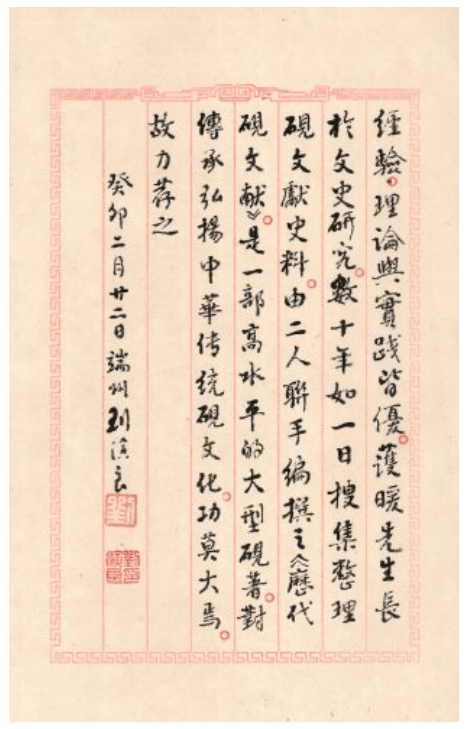 經驗。理論與實踐皆優。護暖先生長
於文史研究。數十年如一日搜集整理
硯文獻史料。由二人聯手編撰之《歷代
硯文献》。是一部高水平的大型硯著。對
傳承弘揚中華传統硯文化。功莫大焉。
故力荐之
癸卯二月廿二日端州刘演良